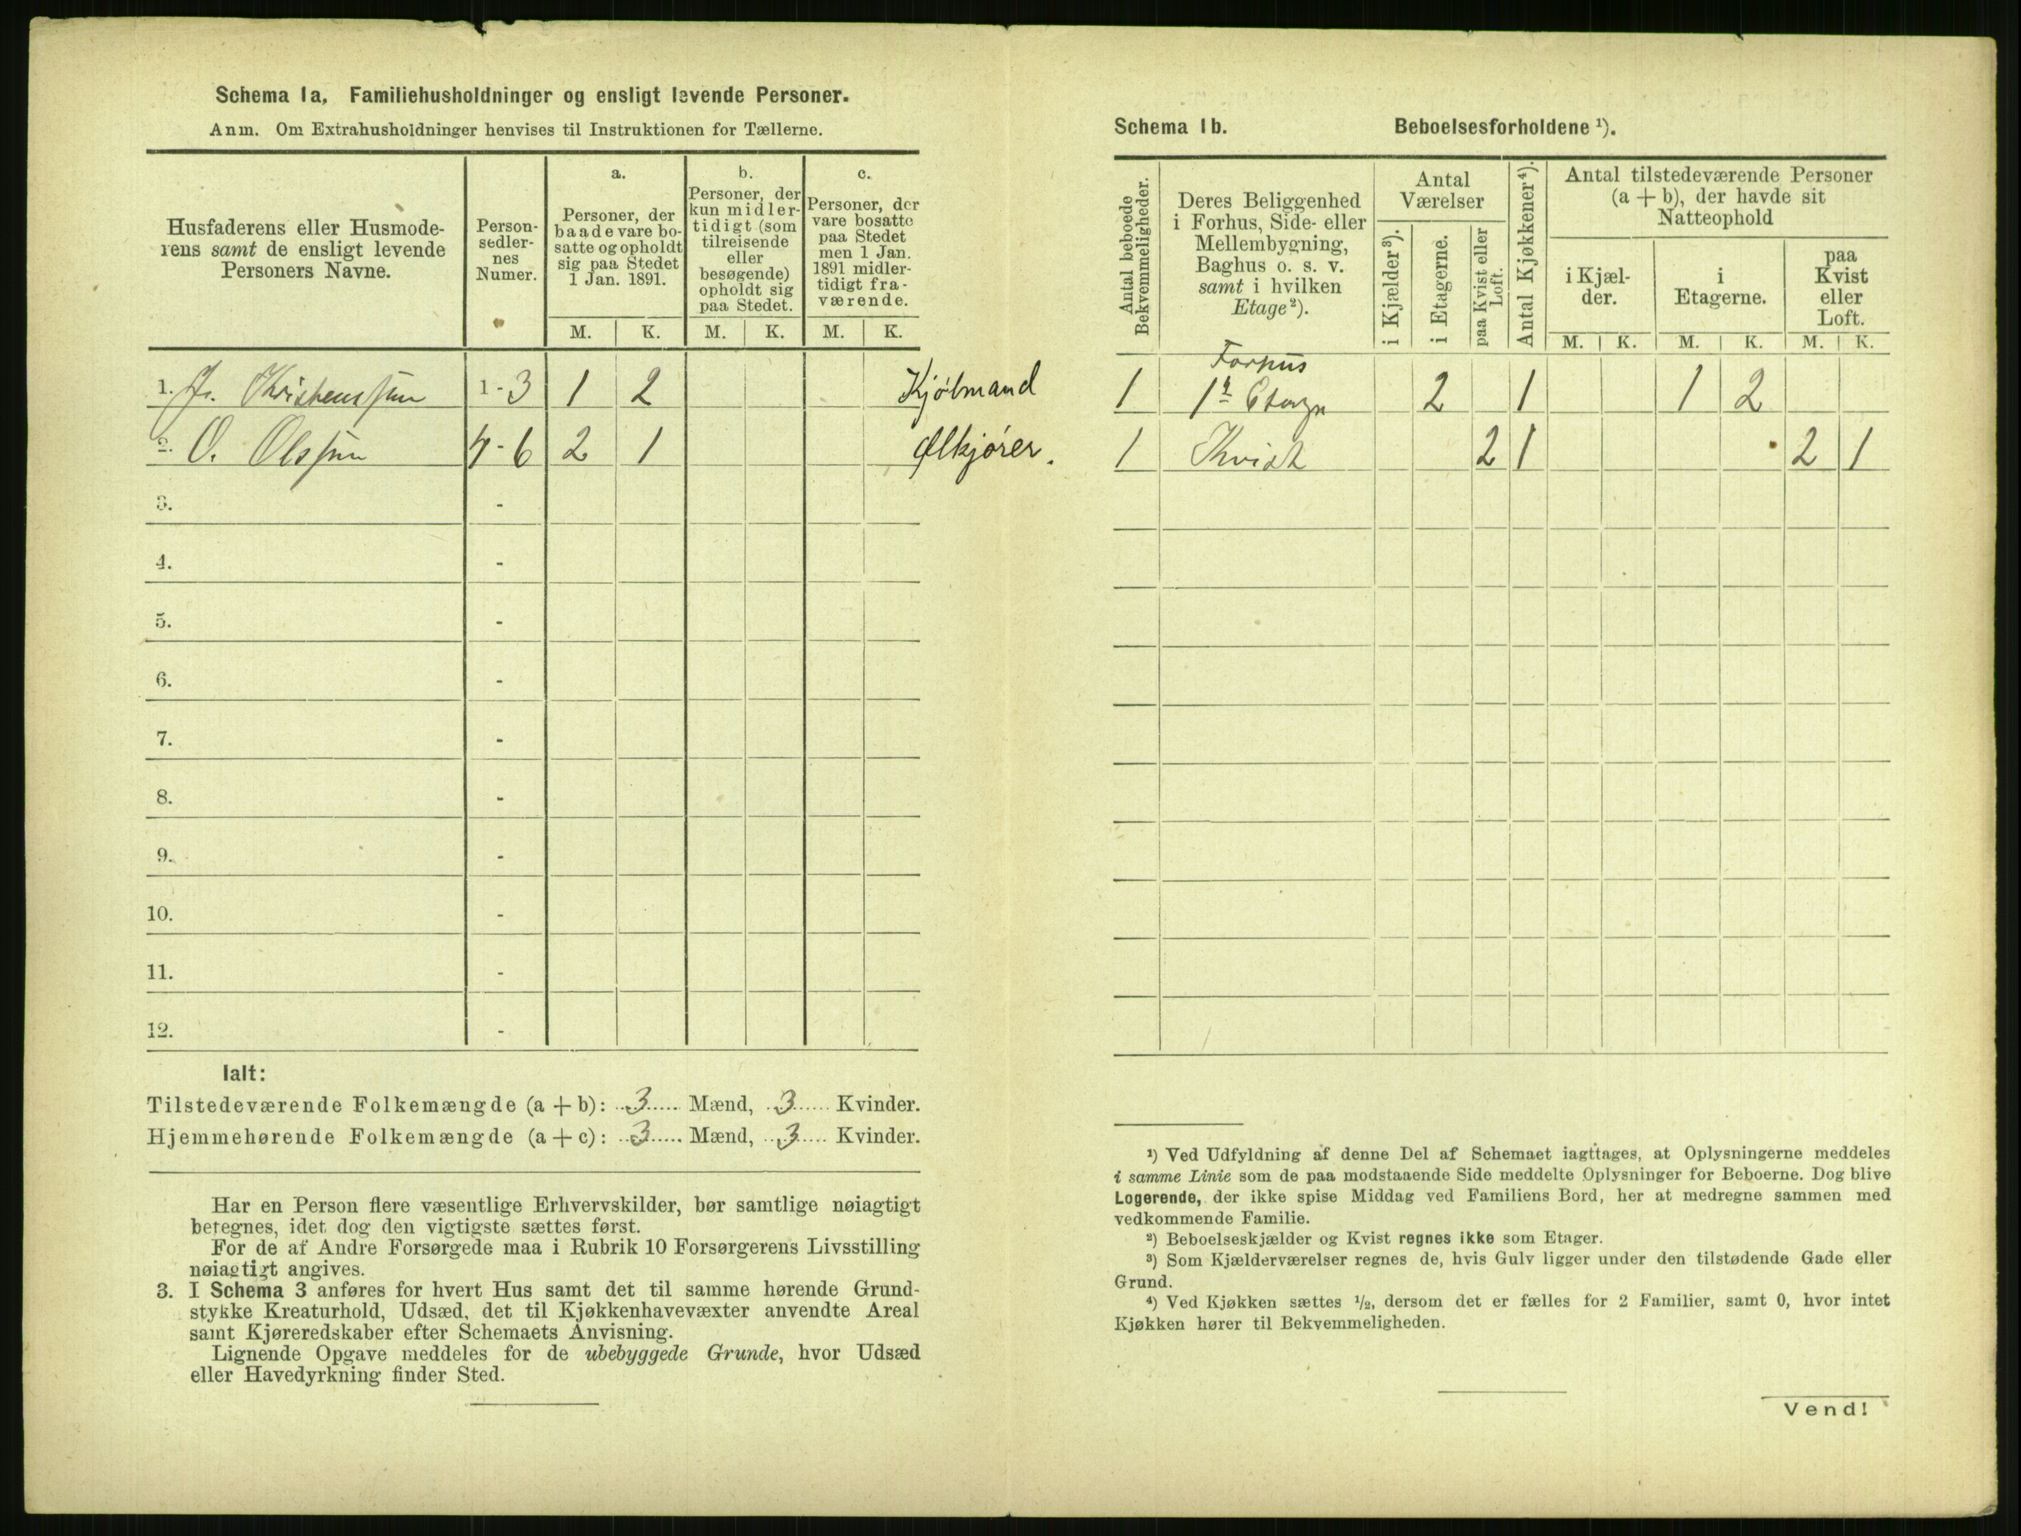 Schema 1a, Familiehusholdninger og ensligt levende Personer.
Anm. Om Extrahusholdninger henvises til Instruktionen for Tællerne.
Husfaderens eller Husmode-
rens samt de ensligt levende
Personers Navne.
Person-
sedler-
nes
Numer.
a.
Personer, der
baade vare bo-
satte og opholdt
sig paa Stedet
1 Jan. 1891.
b.
Personer, der
kun midler-
tidigt (som
tilreisende
eller
besøgende)
opholdt sig
paa Stedet.
c.
Personer, der
vare bosatte
paa Stedet
men 1 Jan.
1891 midler-
tidigt fra-
værende.
M. K. M. K. M. K.
1. Kristenssen 1 - 3 1 2 Kjølmand
2. O. Olssen 4 - 6 2 1 Ølkjører.
3. -
4. -
5. -
6. -
7. -
8. -
9. -
10. -
11. -
12. -
Ialt:
Tilstedeværende Folkemængde (a + b): 3 Mænd, 3 Kvinder.
Hjemmehørende Folkemængde (a + c): 3 Mænd, 3 Kvinder.
Har en Person flere væsentlige Erhvervskilder, bør samtlige nøiagtigt
betegnes, idet dog den vigtigste sættes først.
For de af Andre Forsørgede maa i Rubrik 10 Forsørgerens Livsstilling
nøiagtigt angives.
3. I Schema 3 anføres for hvert Hus samt det til samme hørende Grund-
stykke Kreaturhold, Udsæd, det til Kjøkkenhavevæxter anvendte Areal
samt Kjøreredskaber efter Schemaets Anvisning.
Lignende Opgave meddeles for de ubebyggede Grunde, hvor Udsæd
eller Havedyrkning finder Sted.
Schema 1b. Beboelsesforholdene ¹).
Antal beboede
Bekvemmeligheder.
Deres Beliggenhed
i Forhus, Side- eller
Mellembygning,
Baghus o. s. v.
samt i hvilken
Etage²).
Antal
Værelser
i Kjælder³).
i Etagerne.
paa Kvist eller
Loft.
Antal Kjøkkener⁴).
Antal tilstedeværende Personer
(a + b), der havde sit
Natteophold
i Kjæl-
der.
i
Etagerne.
paa
Kvist
eller
Loft.
M. K. M. K. M. K.
Forhus
1 1ste Etage 2 1 1 2
1 Kvist 2 1 2 1
¹) Ved Udfyldning af denne Del af Schemaet iagttages, at Oplysningerne meddeles
i samme Linie som de paa modstaaende Side meddelte Oplysninger for Beboerne. Dog blive
Logerende, der ikke spise Middag ved Familiens Bord, her at medregne sammen med
vedkommende Familie.
²) Beboelseskjælder og Kvist regnes ikke som Etager.
³) Som Kjælderværelser regnes de, hvis Gulv ligger under den tilstødende Gade eller
Grund.
⁴) Ved Kjøkken sættes ½, dersom det er fælles for 2 Familier, samt 0, hvor intet
Kjøkken hører til Bekvemmeligheden.
Vend!